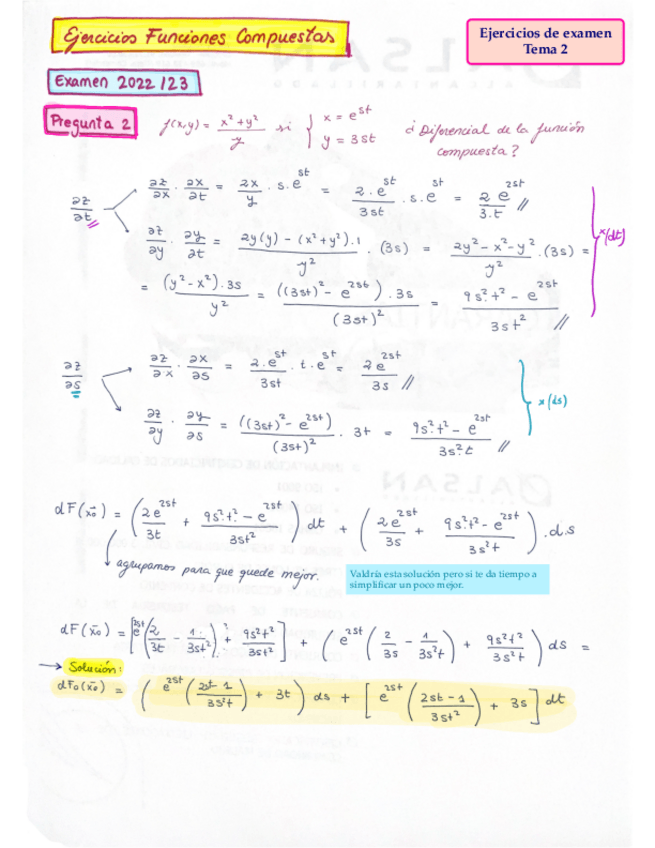 Ejercicios Funciones Compuestas
Ejercicios de examen
Tema 2
Examen 2022/23
Pregunta 2 f(x,y) = (x² + y²)/y si { x = e^st ; y = 3st ¿Diferencial de la función compuesta?
∂z/∂t → ∂z/∂x · ∂x/∂t = 2x/y · s.e^st = (2.e^st)/(3st) . s.e^st = (2 e^2st)/(3.t) //
∂z/∂y · ∂y/∂t = (2y(y) − (x² + y²).1)/y² . (3s) = (2y² − x² − y²)/y² .(3s) =
x(dt)
= ((y² − x²).3s)/y² = (((3st)² − e^2st).3s)/(3st)² = (9s².t² − e^2st)/(3st²) //
∂z/∂s → ∂z/∂x · ∂x/∂s = (2.e^st)/(3st) . t.e^st = (2e^2st)/(3s) //
x(ds)
∂z/∂y · ∂y/∂s = ((3st)² − e^2st)/(3st)² . 3t = (9s².t² − e^2st)/(3s²t) //
dF(x₀) = ((2e^2st)/(3t) + (9s².t² − e^2st)/(3st²)) dt + ((2e^2st)/(3s) + (9s².t² − e^2st)/(3s²t)) .ds
agrupamos para que quede mejor.
Valdría esta solución pero si te da tiempo a
simplificar un poco mejor.
dF(x₀) = [e^2st (2/(3t) − 1/(3st²)) + (9s²t²)/(3st²)] + (e^2st (2/(3s) − 1/(3s²t)) + (9s²t²)/(3s²t)) ds =
→ Solución:
dF₀(x₀) = (e^2st ((2st-1)/(3s²t)) + 3t) ds + [e^2st ((2st − 1)/(3st²)) + 3s] dt